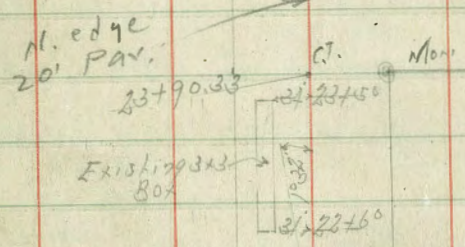 N. edge
20' pav.
C.T.
Mon.
23+90.33
31'-23+50
Existing 3x3
Box
31'-22+60